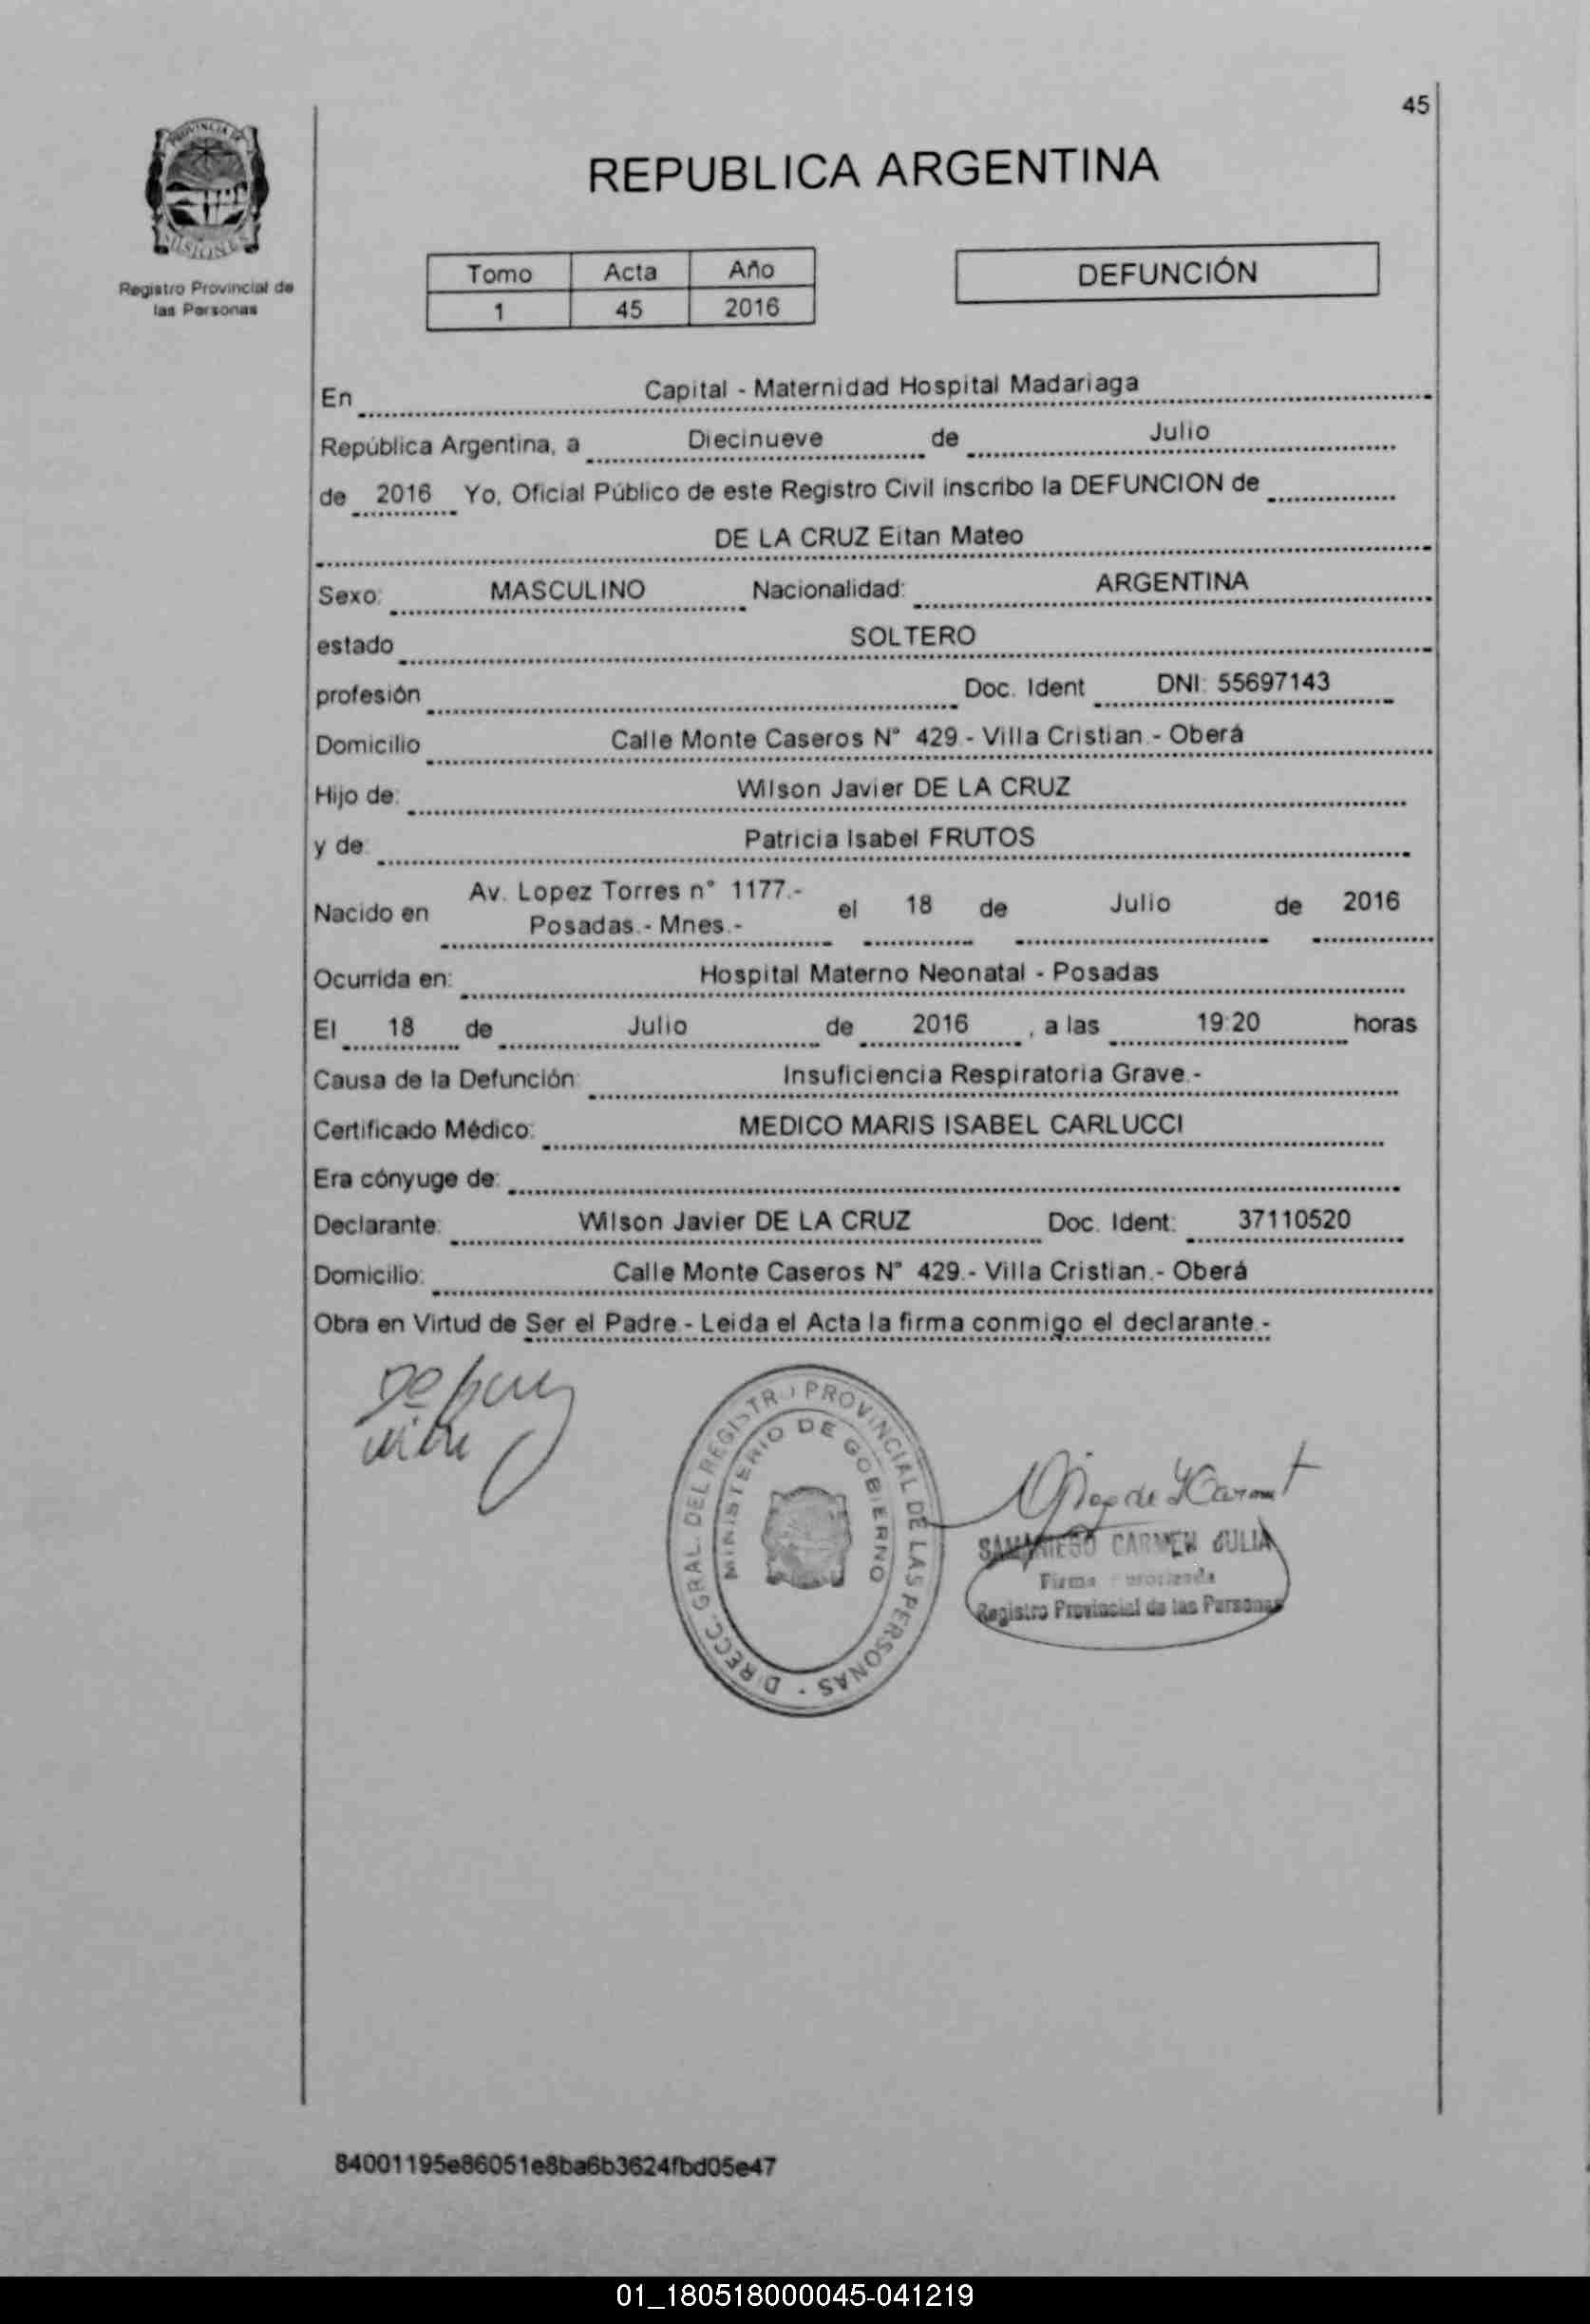 45
PROVINCIA DE
MISIONES
Registro Provincial de
las Personas
REPUBLICA ARGENTINA
Tomo Acta Año
1 45 2016
DEFUNCIÓN
En Capital - Maternidad Hospital Madariaga
República Argentina, a Diecinueve de Julio
de 2016 Yo, Oficial Público de este Registro Civil inscribo la DEFUNCION de
DE LA CRUZ Eitan Mateo
Sexo: MASCULINO Nacionalidad: ARGENTINA
estado SOLTERO
profesión Doc. Ident DNI: 55697143
Domicilio Calle Monte Caseros N° 429.- Villa Cristian.- Oberá
Hijo de: Wilson Javier DE LA CRUZ
y de: Patricia Isabel FRUTOS
Nacido en Av. Lopez Torres n° 1177.- Posadas.- Mnes.- el 18 de Julio de 2016
Ocurrida en: Hospital Materno Neonatal - Posadas
El 18 de Julio de 2016 , a las 19:20 horas
Causa de la Defunción: Insuficiencia Respiratoria Grave.-
Certificado Médico: MEDICO MARIS ISABEL CARLUCCI
Era cónyuge de:
Declarante: Wilson Javier DE LA CRUZ Doc. Ident: 37110520
Domicilio: Calle Monte Caseros N° 429.- Villa Cristian.- Oberá
Obra en Virtud de Ser el Padre.- Leida el Acta la firma conmigo el declarante.-
DIRECC. GRAL. DEL REGISTRO PROVINCIAL DE LAS PERSONAS -
MINISTERIO DE GOBIERNO
SAMANIEGO CARMEN JULIA
Firma
Registro Provincial de las Personas
84001195e86051e8ba6b3624fbd05e47
01_180518000045-041219